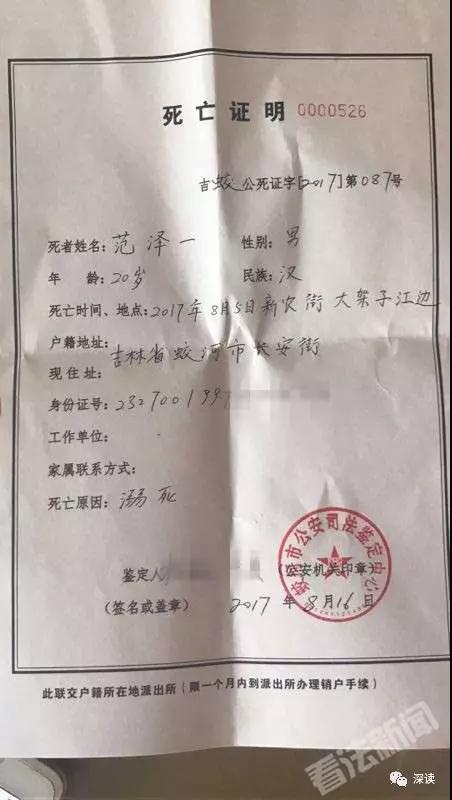 死亡证明 0000526
吉蛟公死证字[2017]第087号
死者姓名：范泽一 性别：男
年 龄：20岁 民族：汉
死亡时间、地点：2017年8月5日新农街大架子江边
户籍地址：吉林省蛟河市长安街
现住址：
身份证号：2327001997
工作单位：
家属联系方式：
死亡原因：溺死
鉴定人
（公安机关印章）
蛟河市公安司法鉴定中心
（签名或盖章） 2017年8月16日
此联交户籍所在地派出所（限一个月内到派出所办理销户手续）
看法新闻
深读